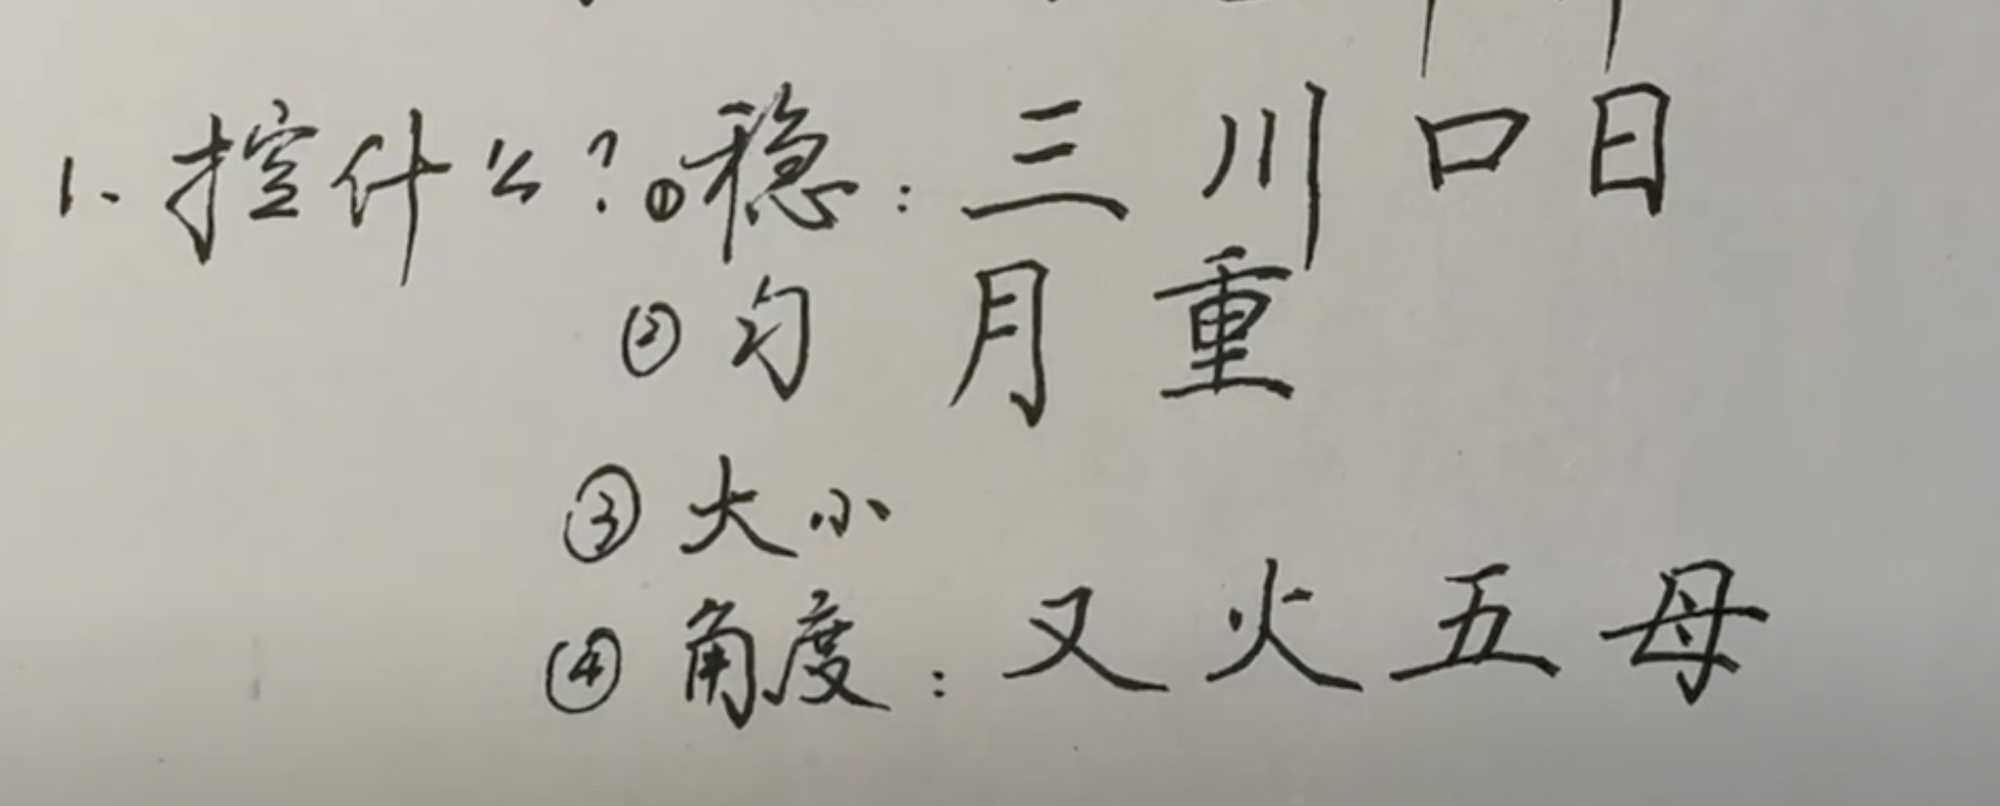 1、控什么?①稳:三 川 口 日
②匀 月 重
③大小
④角度:又 火 五 母